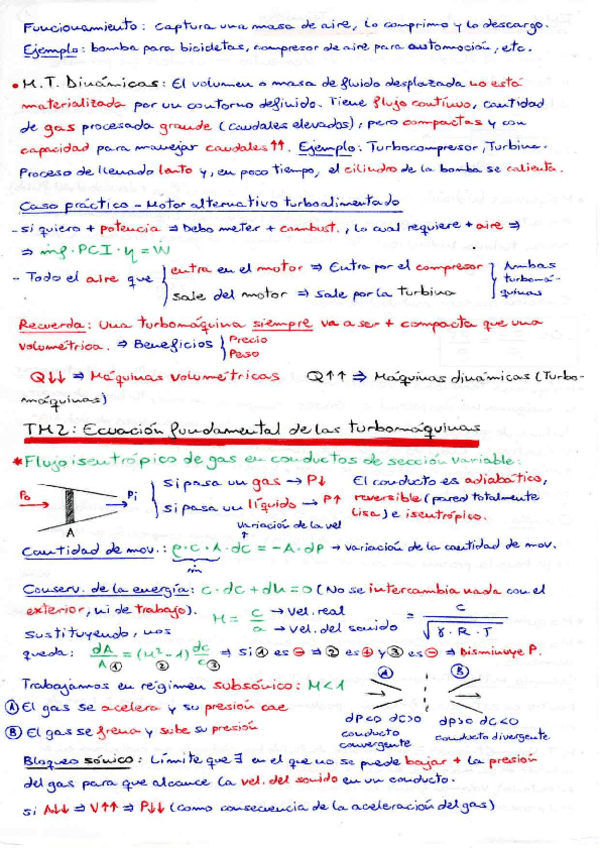 Funcionamiento: Captura una masa de aire, lo comprimo y lo descargo.
Ejemplo: bomba para bicicletas, compresor de aire para automoción, etc.
• M.T. Dinámicas: El volumen o masa de fluido desplazada no está
materializada por un contorno definido. Tiene flujo continuo, cantidad
de gas procesada grande (caudales elevados), pero compactas y con
capacidad para manejar caudales ↑↑. Ejemplo: Turbocompresor, Turbina.
Proceso de llenado lento y, en poco tiempo, el cilindro de la bomba se calienta.
Caso práctico - Motor alternativo turboalimentado
- Si quiero + potencia ⇒ Debo meter + combust., lo cual requiere + aire ⇒
⇒ ṁf · PCI · η = Ẇ
- Todo el aire que { entra en el motor ⇒ Entra por el compresor } Ambas
turbomá-
sale del motor ⇒ sale por la turbina quinas
Recuerda: Una turbomáquina siempre va a ser + compacta que una
volumétrica. ⇒ Beneficios { Precio
Peso
Q↓↓ ⇒ Máquinas volumétricas Q↑↑ ⇒ Máquinas dinámicas (Turbo-
máquinas)
TM2: Ecuación fundamental de las turbomáquinas
* Flujo isentrópico de gas en conductos de sección variable:
si pasa un gas → P↓ El conducto es adiabático,
P₀ P₁ si pasa un líquido → P↑ reversible (pared totalmente
lisa) e isentrópico.
A
variación de la vel
Cantidad de mov.: ρ·C·A·dC = -A·dP → variación de la cantidad de mov.
ṁ
Conserv. de la energía: c·dc + dh = 0 (No se intercambia nada con el
exterior, ni de trabajo). M = c/a → Vel. real → Vel. del sonido = c/√(γ·R·T)
Sustituyendo, nos
queda: dA/A ① = (M²-1) ② dc/c ③ ⇒ si ① es ⊖ ⇒ ② es ⊕ y ③ es ⊖ ⇒ Disminuye P.
Trabajamos en régimen subsónico: M<1
Ⓐ Ⓑ
Ⓐ El gas se acelera y su presión cae
Ⓑ El gas se frena y sube su presión
dP<0 dC>0 dP>0 dC<0
conducto convergente conducto divergente
Bloqueo sónico: Límite que ∃ en el que no se puede bajar + la presión
del gas para que alcance la vel. del sonido en un conducto.
si A↓↓ ⇒ V↑↑ ⇒ P↓↓ (como consecuencia de la aceleración del gas)